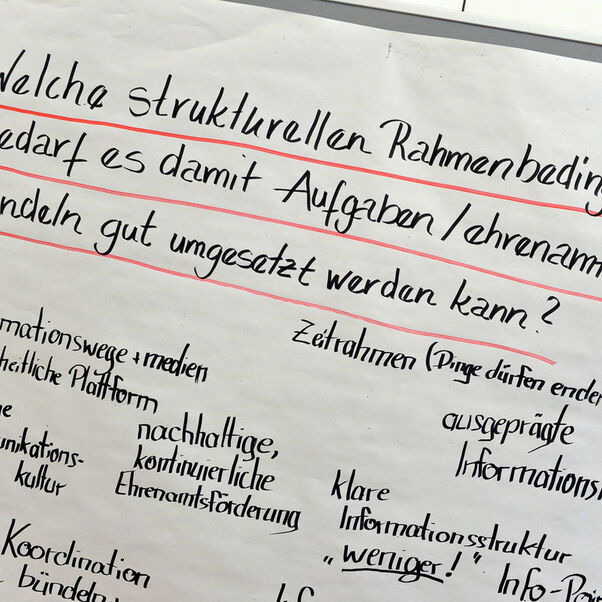 Welche strukturellen Rahmenbeding
edarf es damit Aufgaben / ehrenamt
ndeln gut umgesetzt werden kann?
mationswege + medien
heitliche Plattform
Zeitrahmen (Dinge dürfen enden
nachhaltige,
kontinuierliche
Ehrenamtsförderung
unikations-
kultur
ausgeprägte
Informations
klare
Informationsstruktur
„weniger!"
Koordination
bündeln
Info-Poi